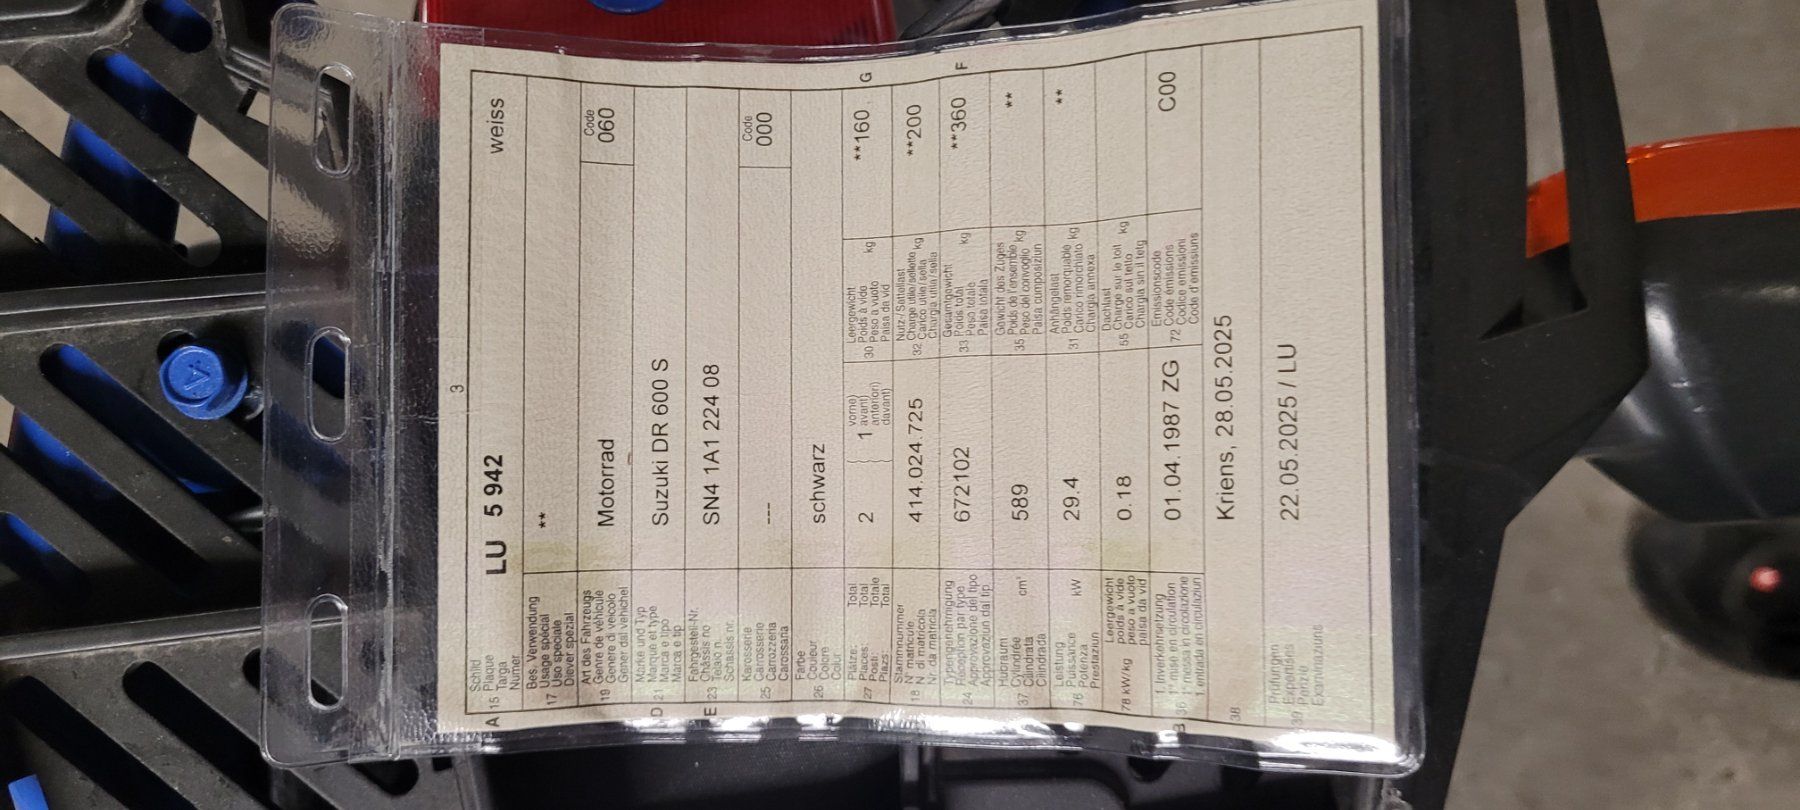 3
Schild
A 15 Plaque
Targa
Numer
LU 5 942
weiss
Bes. Verwendung
17 Usage spécial
Uso speciale
Diever spezial
**
Art des Fahrzeugs
19 Genre de véhicule
Genere di veicolo
Gener dal vehichel
Motorrad
Code
060
Marke und Typ
D 21 Marque et type
Marca e tipo
Marca e tip
Suzuki DR 600 S
Fahrgestell-Nr.
E 23 Châssis no
Telaio n.
Schassis nr.
SN4 1A1 224 08
Karosserie
25 Carrosserie
Carrozzeria
Carossaria
---
Code
000
Farbe
26 Couleur
Colore
Calur
schwarz
Plätze: Total
27 Places: Total
Posti: Totale
Plazs: Total
2
1
vorne)
avant)
anteriori)
davant)
Leergewicht
30 Poids à vide kg
Peso a vuoto
Paisa da vid
**160
G
Stammnummer
18 N° matricule
N. di matricola
Nr. da matricla
414.024.725
Nutz-/Sattellast
32 Charge utile/sellette kg
Carico utile/sella
Chargia utila/sella
**200
Typengenehmigung
24 Réception par type
Approvazione del tipo
Approvaziun dal tip
672102
Gesamtgewicht
33 Poids total kg
Peso totale
Paisa totala
**360
F
Hubraum
37 Cylindrée cm³
Cilindrata
Cilindrada
589
Gewicht des Zuges
35 Poids de l'ensemble kg
Peso del convoglio
Paisa cumposiziun
**
Leistung
76 Puissance kW
Potenza
Prestaziun
29.4
Anhängelast
31 Poids remorquable kg
Carico rimorchiato
Chargia annexa
**
78 kW/kg
Leergewicht
poids à vide
peso a vuoto
paisa da vid
0.18
Dachlast
55 Charge sur le toit kg
Carico sul tetto
Chargia sin il tetg
B 36 1. Inverkehrsetzung
1re mise en circulation
1a messa in circolazione
1. entrada en circulaziun
01.04.1987 ZG
Emissionscode
72 Code émissions
Codice emissioni
Code d'emissiuns
C00
38
Kriens, 28.05.2025
Prüfungen
39 Expertises
Perizie
Examinaziuns
22.05.2025 / LU